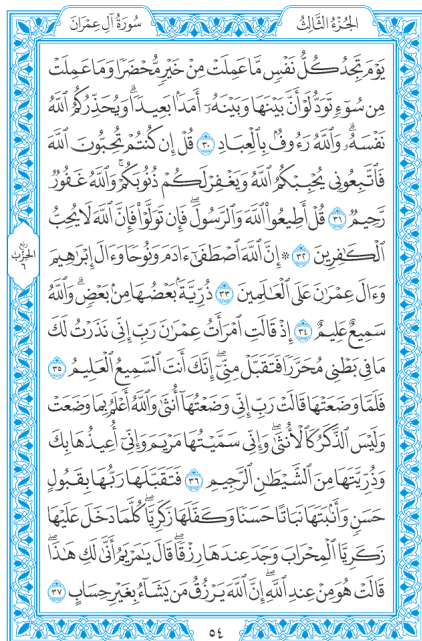 الجُزءُ الثَّالِثُ
سُورَةُ آلِ عِمْرَانَ
يَوْمَ تَجِدُ كُلُّ نَفْسٍ مَّا عَمِلَتْ مِنْ خَيْرٍ مُّحْضَرًا وَمَا عَمِلَتْ
مِن سُوٓءٍ تَوَدُّ لَوْ أَنَّ بَيْنَهَا وَبَيْنَهُۥٓ أَمَدًۢا بَعِيدًاۗ وَيُحَذِّرُكُمُ ٱللَّهُ
نَفْسَهُۥۗ وَٱللَّهُ رَءُوفُۢ بِٱلْعِبَادِ ٣٠ قُلْ إِن كُنتُمْ تُحِبُّونَ ٱللَّهَ
فَٱتَّبِعُونِي يُحْبِبْكُمُ ٱللَّهُ وَيَغْفِرْ لَكُمْ ذُنُوبَكُمْۚ وَٱللَّهُ غَفُورٌ
رَّحِيمٌ ٣١ قُلْ أَطِيعُوا۟ ٱللَّهَ وَٱلرَّسُولَۖ فَإِن تَوَلَّوْا۟ فَإِنَّ ٱللَّهَ لَا يُحِبُّ
ٱلْكَٰفِرِينَ ٣٢ ۞ إِنَّ ٱللَّهَ ٱصْطَفَىٰٓ ءَادَمَ وَنُوحًا وَءَالَ إِبْرَٰهِيمَ
وَءَالَ عِمْرَٰنَ عَلَى ٱلْعَٰلَمِينَ ٣٣ ذُرِّيَّةَۢ بَعْضُهَا مِنۢ بَعْضٍۗ وَٱللَّهُ
سَمِيعٌ عَلِيمٌ ٣٤ إِذْ قَالَتِ ٱمْرَأَتُ عِمْرَٰنَ رَبِّ إِنِّي نَذَرْتُ لَكَ
مَا فِي بَطْنِي مُحَرَّرًا فَتَقَبَّلْ مِنِّيٓۖ إِنَّكَ أَنتَ ٱلسَّمِيعُ ٱلْعَلِيمُ ٣٥
فَلَمَّا وَضَعَتْهَا قَالَتْ رَبِّ إِنِّي وَضَعْتُهَآ أُنثَىٰ وَٱللَّهُ أَعْلَمُ بِمَا وَضَعَتْ
وَلَيْسَ ٱلذَّكَرُ كَٱلْأُنثَىٰۖ وَإِنِّي سَمَّيْتُهَا مَرْيَمَ وَإِنِّيٓ أُعِيذُهَا بِكَ
وَذُرِّيَّتَهَا مِنَ ٱلشَّيْطَٰنِ ٱلرَّجِيمِ ٣٦ فَتَقَبَّلَهَا رَبُّهَا بِقَبُولٍ
حَسَنٍ وَأَنۢبَتَهَا نَبَاتًا حَسَنًا وَكَفَّلَهَا زَكَرِيَّاۖ كُلَّمَا دَخَلَ عَلَيْهَا
زَكَرِيَّا ٱلْمِحْرَابَ وَجَدَ عِندَهَا رِزْقًاۖ قَالَ يَٰمَرْيَمُ أَنَّىٰ لَكِ هَٰذَاۖ
قَالَتْ هُوَ مِنْ عِندِ ٱللَّهِۖ إِنَّ ٱللَّهَ يَرْزُقُ مَن يَشَآءُ بِغَيْرِ حِسَابٍ ٣٧
ربع
الحزب
٦
٥٤